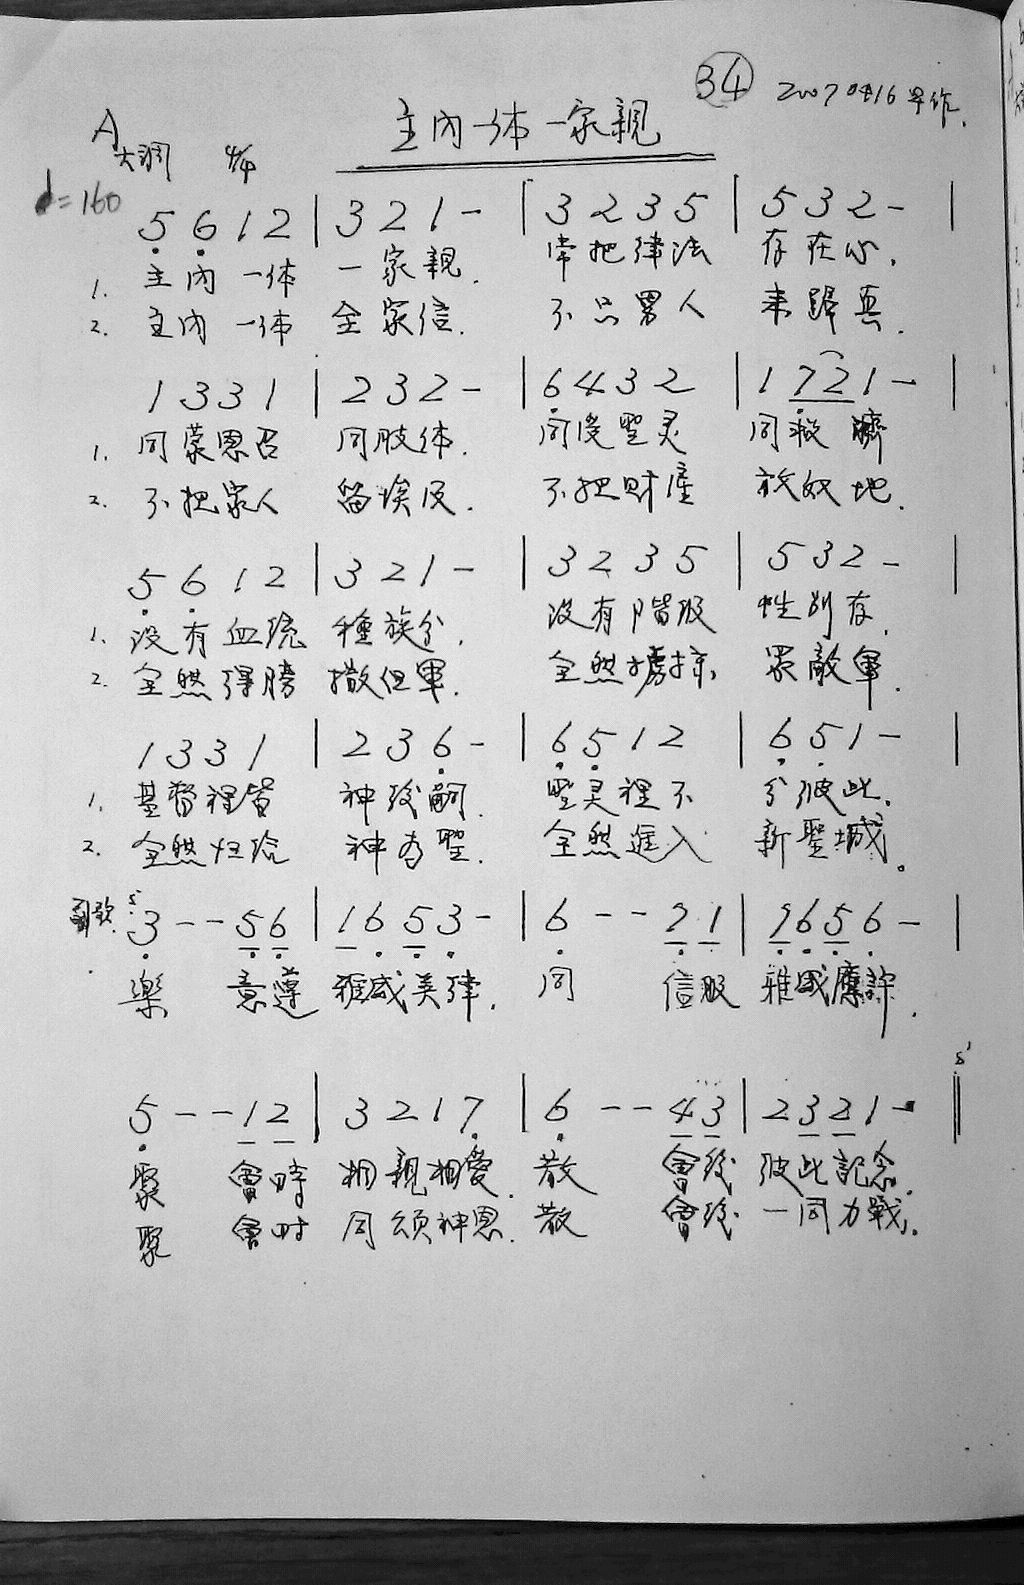 34 20070416 早作.
主內一体一家親
A大調 4/4
♩=160
5̣ 6̣ 1 2 | 3 2 1 - | 3 2 3 5 | 5 3 2 - |
1. 主內一体 一家親. 常把律法 存在心.
2. 主內一体 全家信. 不只男人 来歸真.
1 3 3 1 | 2 3 2 - | 6̣ 4 3 2 | 1 7̣ 2 1 - |
1. 同蒙恩召 同肢体. 同受聖灵 同救濟
2. 不把家人 留埃及. 不把財產 放奴地.
5̣ 6̣ 1 2 | 3 2 1 - | 3 2 3 5 | 5 3 2 - |
1. 沒有血统 種族分. 沒有階級 性别存.
2. 全然得勝 撒但軍. 全然擄掠 眾敵軍.
1 3 3 1 | 2 3 6̣ - | 6̣ 5̣ 1 2 | 6̣ 5̣ 1 - |
1. 基督裡皆 神後嗣. 聖灵裡不 分彼此.
2. 全然归给 神為聖. 全然進入 新聖城。
副歌 3 - - 5̣ 6̣ | 1 6̣ 5̣ 3̣ - | 6̣ - - 2̣ 1 | 1 6̣ 5̣ 6̣ - |
樂 意遵 雅威美律. 同 信服 雅威應許.
5̣ - - 1 2 | 3 2 1 7̣ | 6̣ - - 4 3 | 2 3 2 1 - ‖
聚 會時 相親相愛. 散 會後 彼此記念.
聚 會时 同頌神恩. 散 會後 一同力戰.